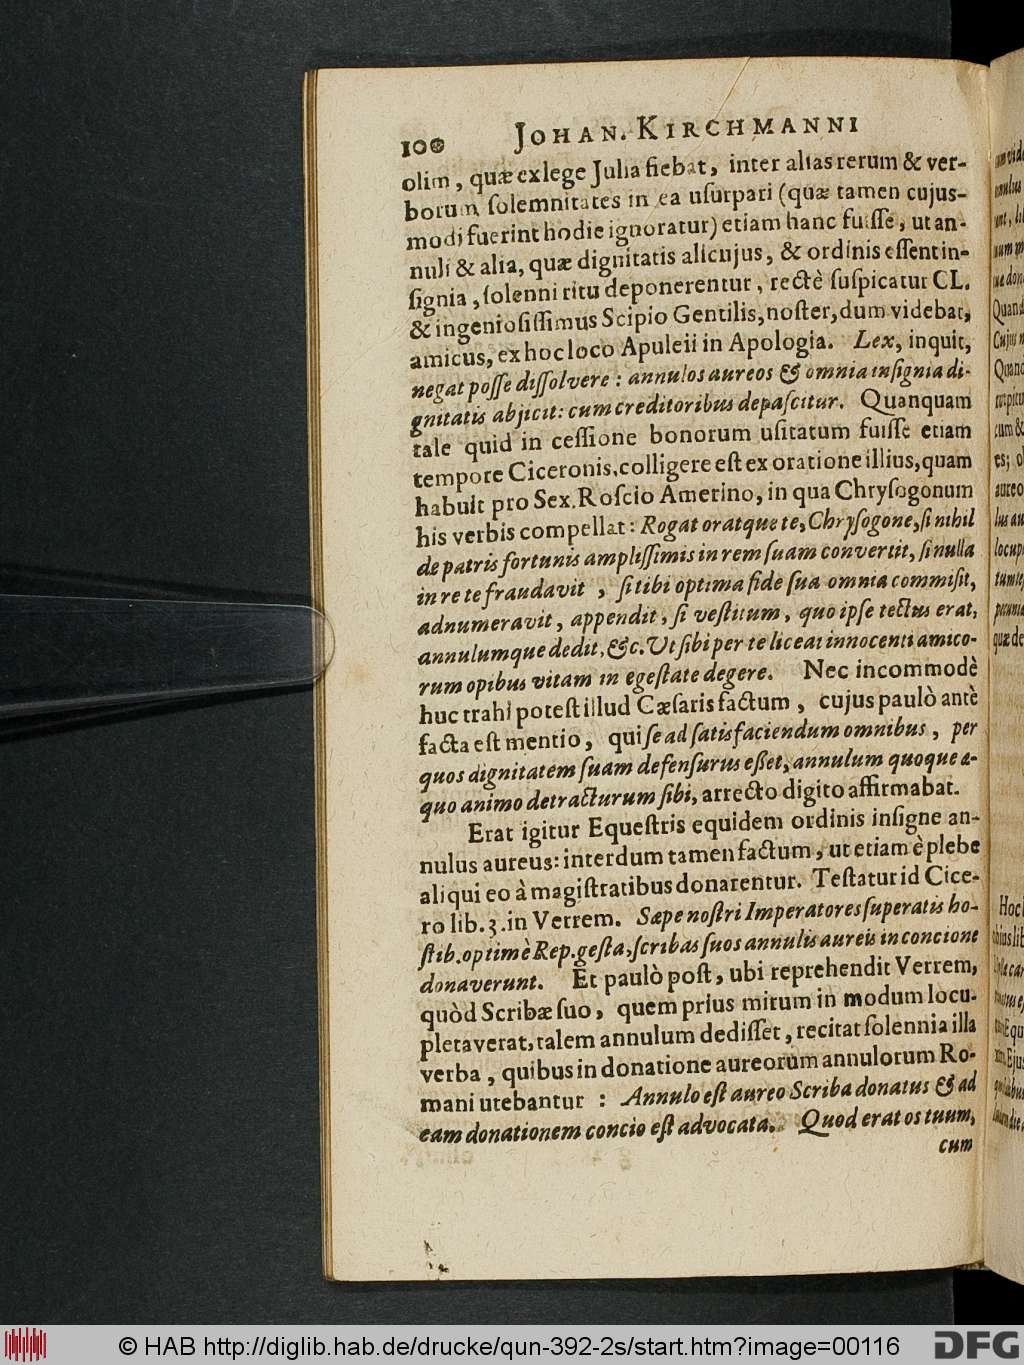 100 JOHAN. KIRCHMANNI
olim, quæ exlege Julia fiebat, inter alias rerum & ver-
borum solemnitates in ea usurpari (quæ tamen cujus-
modi fuerint hodie ignoratur) etiam hanc fuisse, ut an-
nuli & alia, quæ dignitatis alicujus, & ordinis essent in-
signia, solenni ritu deponerentur, rectè suspicatur CL.
& ingeniosissimus Scipio Gentilis, noster, dum videbat,
amicus, ex hoc loco Apuleii in Apologia. Lex, inquit,
negat posse dissolvere: annulos aureos & omnia insignia di-
gnitatis abjicit: cum creditoribus depascitur. Quanquam
tale quid in cessione bonorum usitatum fuisse etiam
tempore Ciceronis, colligere est ex oratione illius, quam
habuit pro Sex. Roscio Amerino, in qua Chrysogonum
his verbis compellat: Rogat oratque te, Chrysogone, si nihil
de patris fortunis amplissimis in rem suam convertit, si nulla
in re te fraudavit, si tibi optima fide sua omnia commisit,
adnumeravit, appendit, si vestitum, quo ipse tectus erat,
annulumque dedit, &c. Ut sibi per te liceat innocenti amico-
rum opibus vitam in egestate degere. Nec incommodè
huc trahi potest illud Cæsaris factum, cujus paulò antè
facta est mentio, qui se ad satisfaciendum omnibus, per
quos dignitatem suam defensurus esset, annulum quoque æ-
quo animo detracturum sibi, arrecto digito affirmabat.
Erat igitur Equestris equidem ordinis insigne an-
nulus aureus: interdum tamen factum, ut etiam è plebe
aliqui eo à magistratibus donarentur. Testatur id Cice-
ro lib. 3. in Verrem. Sæpe nostri Imperatores superatis ho-
stib. optimè Rep. gesta, scribas suos annulis aureis in concione
donaverunt. Et paulò post, ubi reprehendit Verrem,
quòd Scribæ suo, quem prius mirum in modum locu-
pletaverat, talem annulum dedisset, recitat solennia illa
verba, quibus in donatione aureorum annulorum Ro-
mani utebantur: Annulo est aureo Scriba donatus & ad
eam donationem concio est advocata. Quod erat os tuum,
cum
© HAB http://diglib.hab.de/drucke/qun-392-2s/start.htm?image=00116
DFG